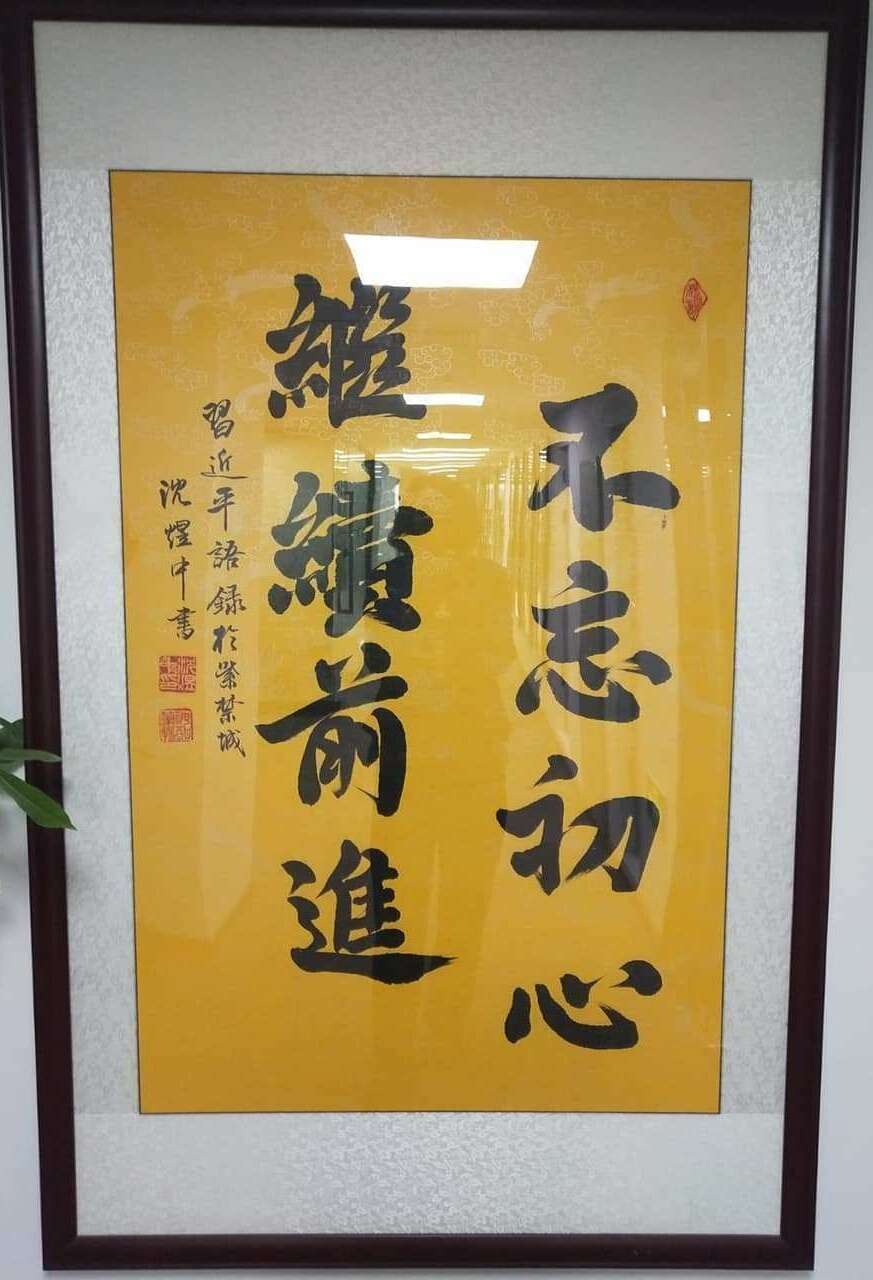 不忘初心
繼續前進
習近平語録於紫禁城
沈煜中書